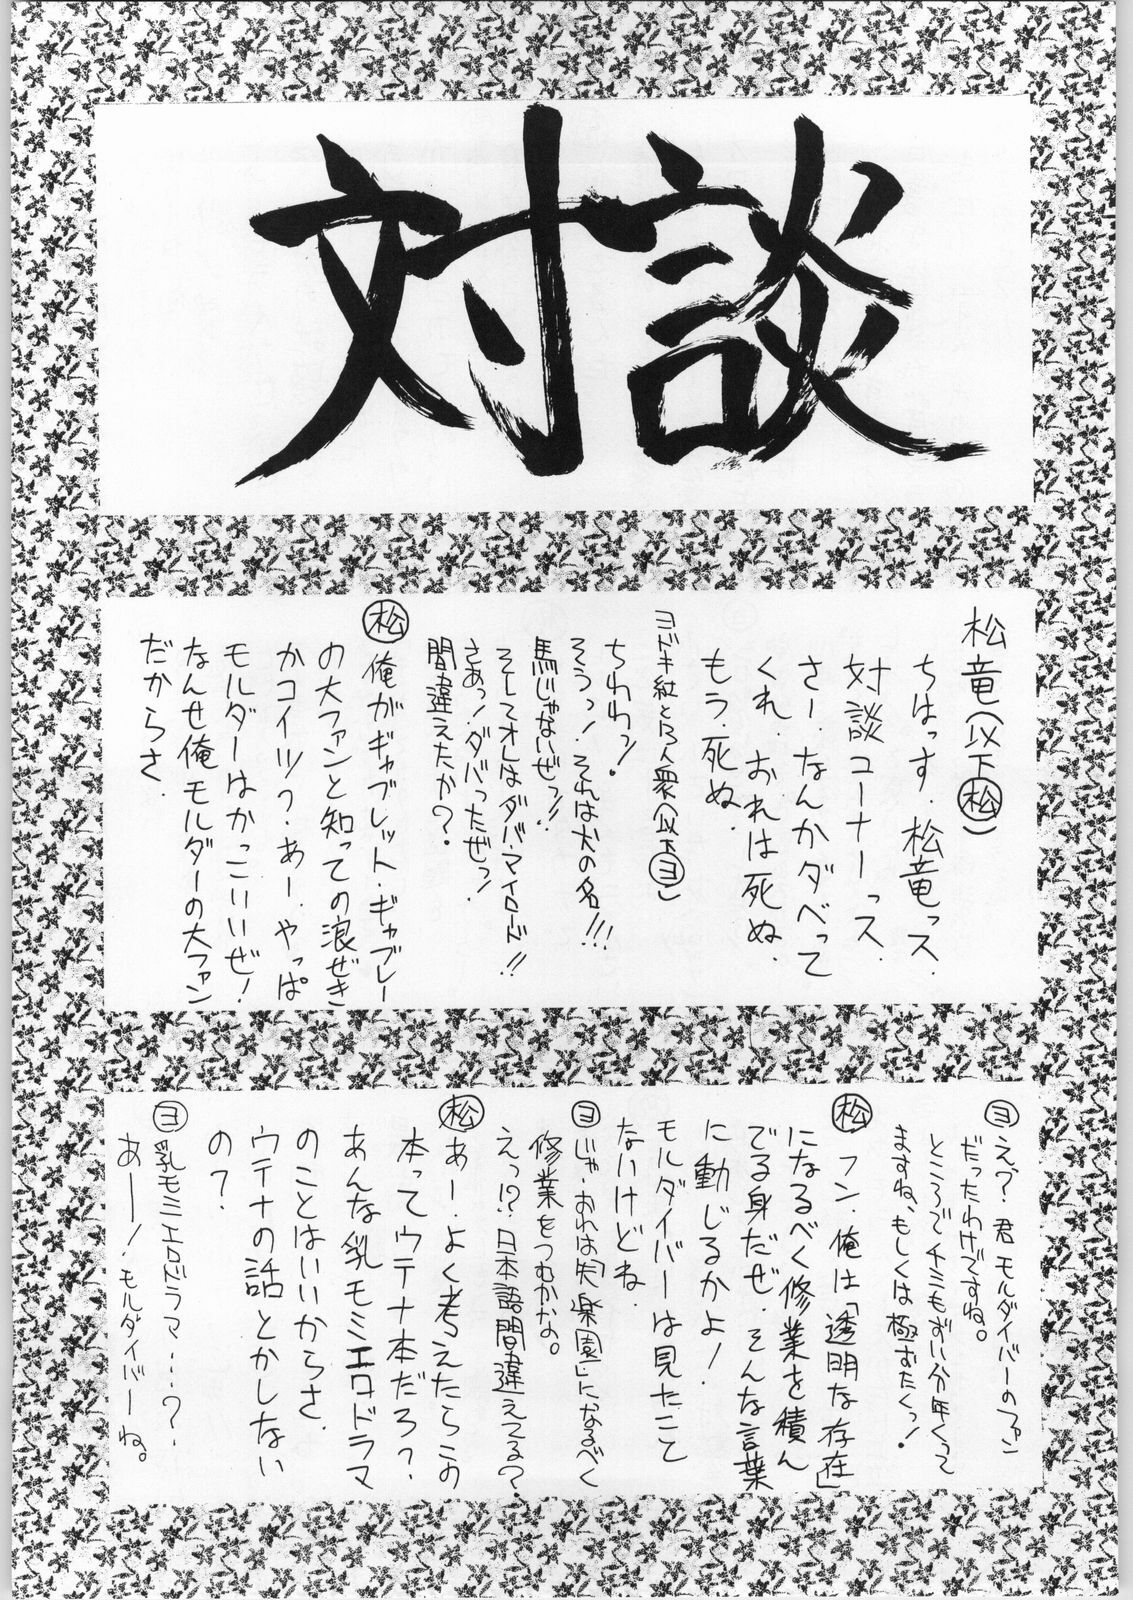 対談
松竜(以下松)
ちはっす.松竜っス.
対談コーナーっス.
さー.なんかダベって
くれ.おれは死ぬ.
もう.死ぬ.
ヨドキ紅とろろ人衆(以下ヨ)
ちわわっ!
そうっ!それは犬の名!!!
馬じゃないぜっ!!
そしてオレはダバ・マイロード!!
さあっ!ダバったぜっ!
間違えたか?
松 俺がギャブレット・ギャブレー
の大ファンと知っての浪ぜき
かコイツ?.あー.やっぱ
モルダーはかっこいいぜ!
なんせ俺モルダーの大ファン
だからさ.
ヨ えっ?君モルダイバーのファン
だったわけですね。
ところでチミもずい分年くって
ますね、もしくは極ヲタくっ!
松 フン.俺は「透明な存在」
になるべく修業を積ん
でる身だぜ.そんな言葉
に動じるかよ!
モルダイバーは見たこと
ないけどね.
ヨ じゃ・おれは「失楽園」になるべく
修業をつむかな。
えっ!?日本語間違えてる?
松 あー.よく考えたらこの
本ってウテナ本だろ?.
あんな乳モミエロドラマ
のことはいいからさ.
ウテナの話とかしない
の?.
ヨ 乳モミエロドラマ…?.
あー!モルダイバーね。